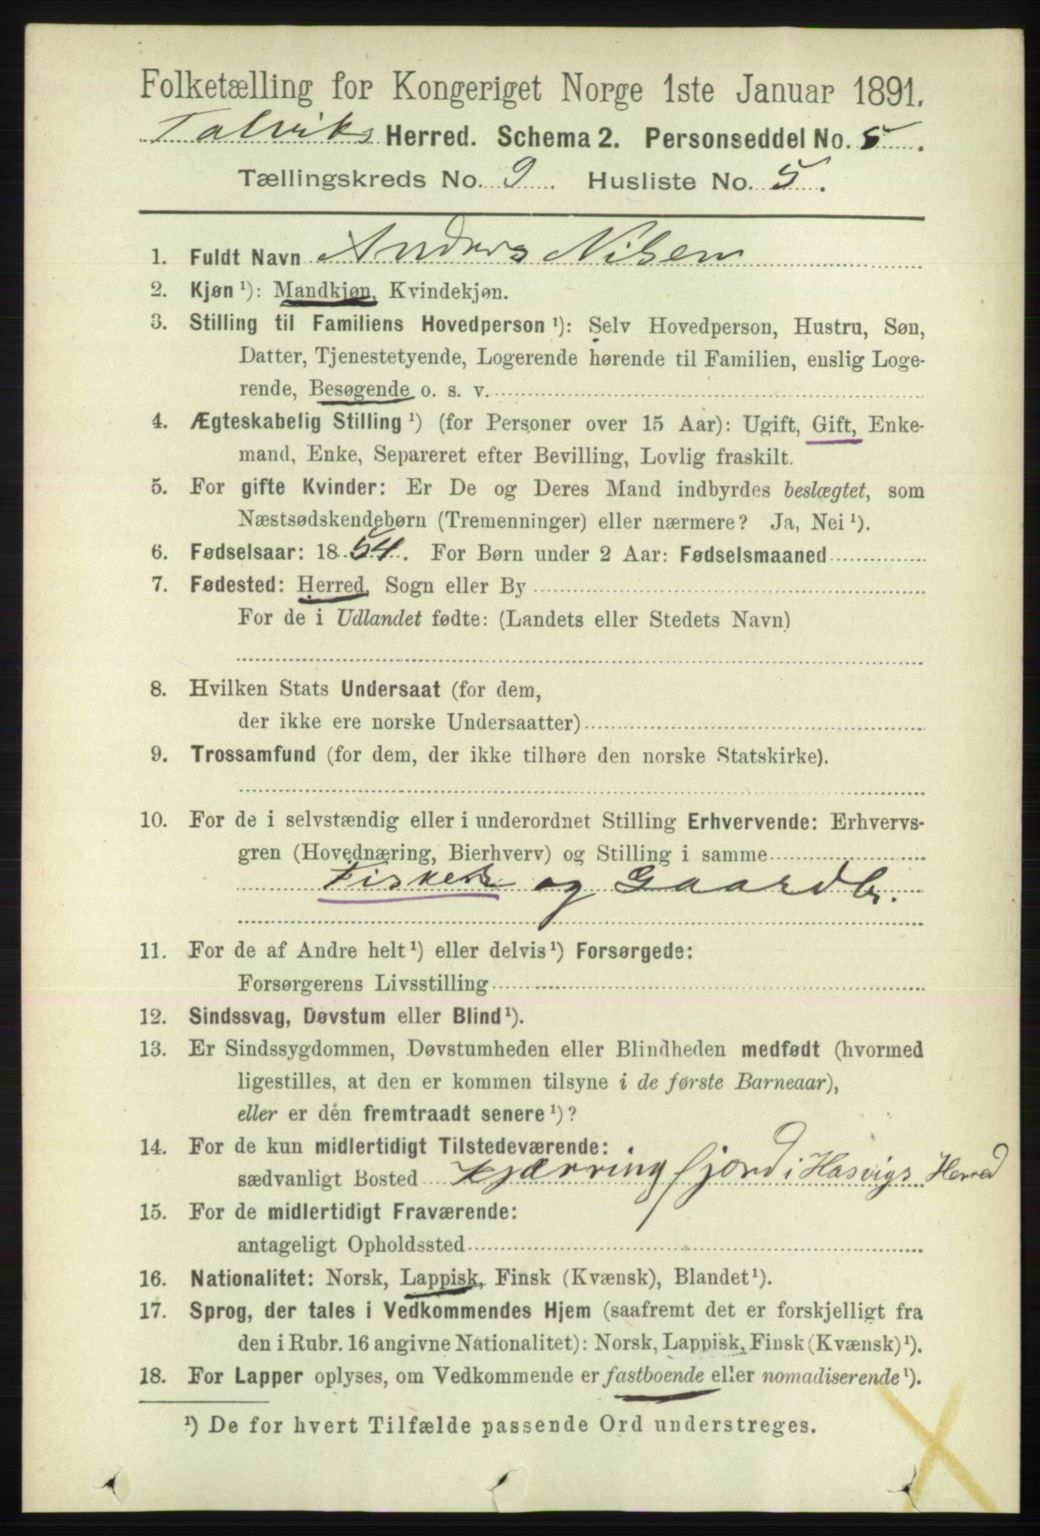 Folketælling for Kongeriget Norge 1ste Januar 1891.
Talviks Herred. Schema 2. Personseddel No. 5.
Tællingskreds No. 9. Husliste No. 5.
1. Fuldt Navn Anders Nilsen
2. Kjøn ¹): Mandkjøn, Kvindekjøn.
3. Stilling til Familiens Hovedperson ¹): Selv Hovedperson, Hustru, Søn,
Datter, Tjenestetyende, Logerende hørende til Familien, enslig Loge-
rende, Besøgende o. s. v.
4. Ægteskabelig Stilling ¹) (for Personer over 15 Aar): Ugift, Gift, Enke-
mand, Enke, Separeret efter Bevilling, Lovlig fraskilt.
5. For gifte Kvinder: Er De og Deres Mand indbyrdes beslægtet, som
Næstsødskendebørn (Tremenninger) eller nærmere? Ja, Nei ¹).
6. Fødselsaar: 1854. For Børn under 2 Aar: Fødselsmaaned
7. Fødested: Herred, Sogn eller By
For de i Udlandet fødte: (Landets eller Stedets Navn)
8. Hvilken Stats Undersaat (for dem,
der ikke ere norske Undersaatter)
9. Trossamfund (for dem, der ikke tilhøre den norske Statskirke).
10. For de i selvstændig eller i underordnet Stilling Erhvervende: Erhvervs-
gren (Hovednæring, Bierhverv) og Stilling i samme
Fisker og Gaardbr.
11. For de af Andre helt ¹) eller delvis ¹) Forsørgede:
Forsørgerens Livsstilling
12. Sindssvag, Døvstum eller Blind ¹).
13. Er Sindssygdommen, Døvstumheden eller Blindheden medfødt (hvormed
ligestilles, at den er kommen tilsyne i de første Barneaar),
eller er dén fremtraadt senere ¹)?
14. For de kun midlertidigt Tilstedeværende:
sædvanligt Bosted Kjærringfjord i Hasvigs Herred
15. For de midlertidigt Fraværende:
antageligt Opholdssted
16. Nationalitet: Norsk, Lappisk, Finsk (Kvænsk), Blandet ¹).
17. Sprog, der tales i Vedkommendes Hjem (saafremt det er forskjelligt fra
den i Rubr. 16 angivne Nationalitet): Norsk, Lappisk, Finsk (Kvænsk) ¹).
18. For Lapper oplyses, om Vedkommende er fastboende eller nomadiserende ¹).
¹) De for hvert Tilfælde passende Ord understreges.